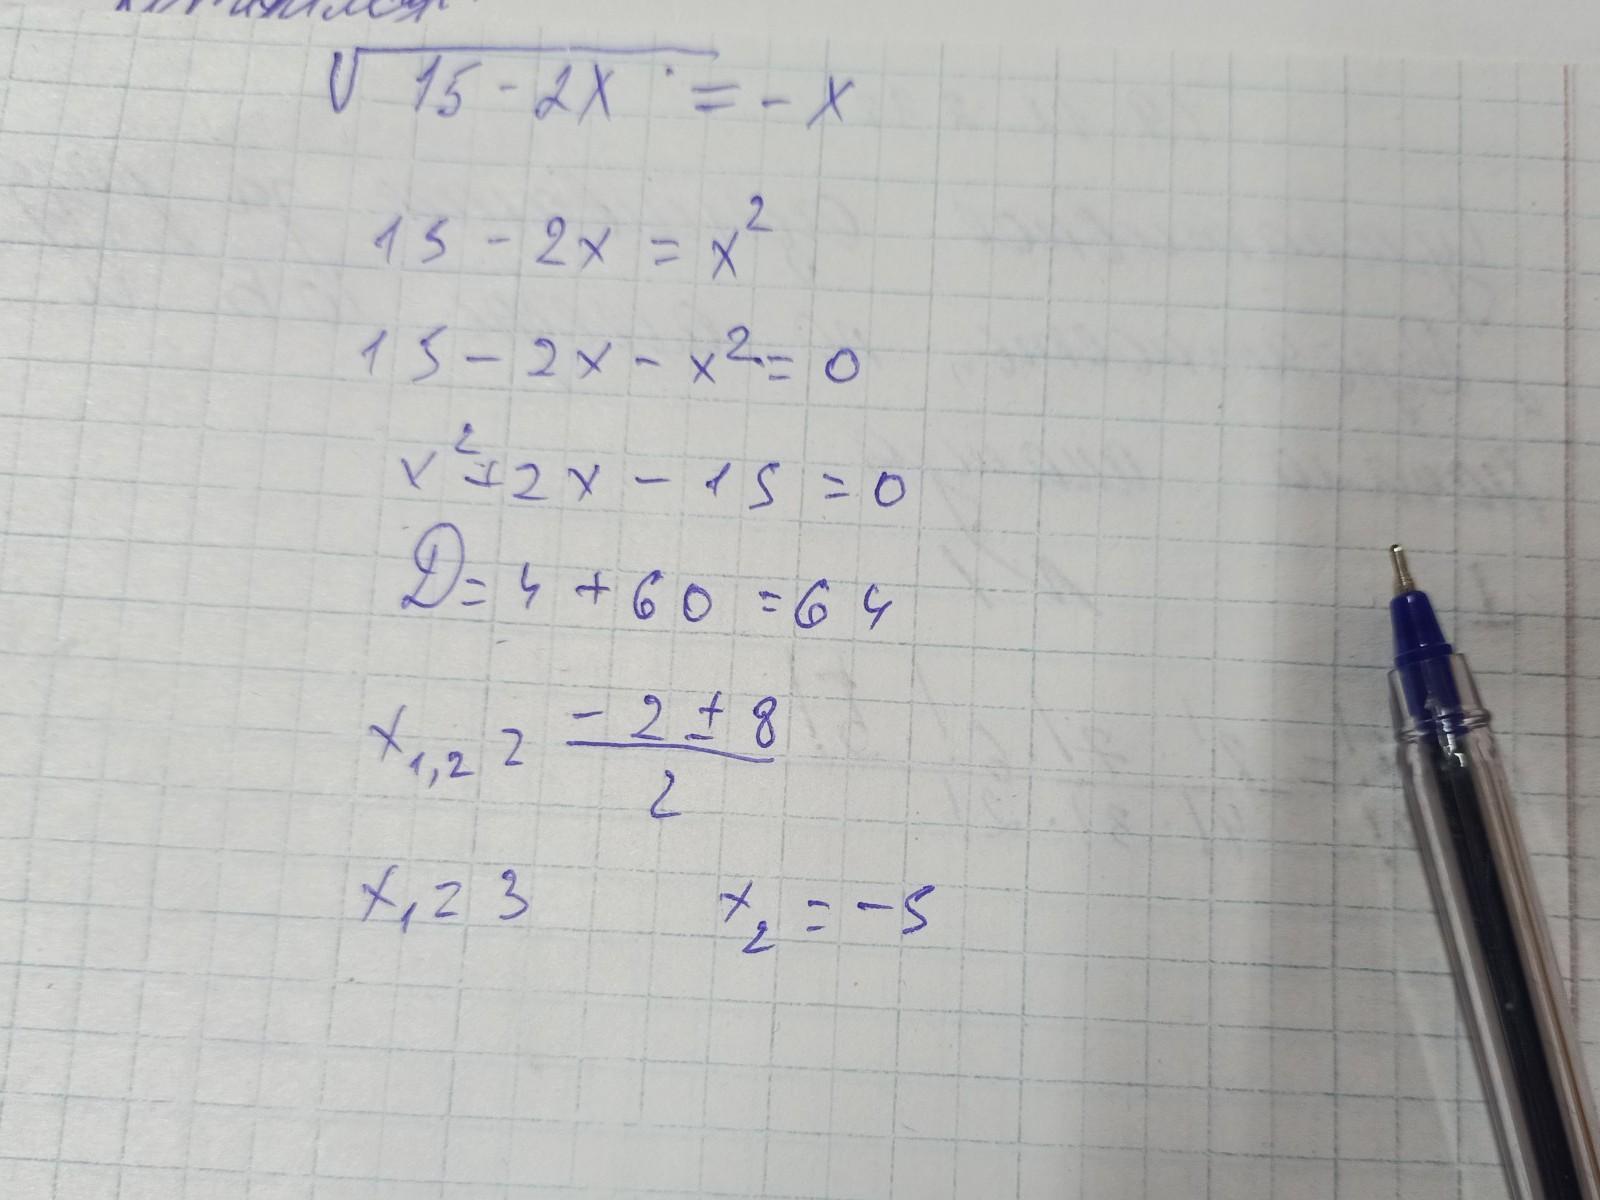 √15 - 2x = - x
15 - 2x = x²
15 - 2x - x² = 0
x² + 2x - 15 = 0
D = 4 + 60 = 64
x₁,₂ = (- 2 ± 8) / 2
x₁ = 3 x₂ = -5